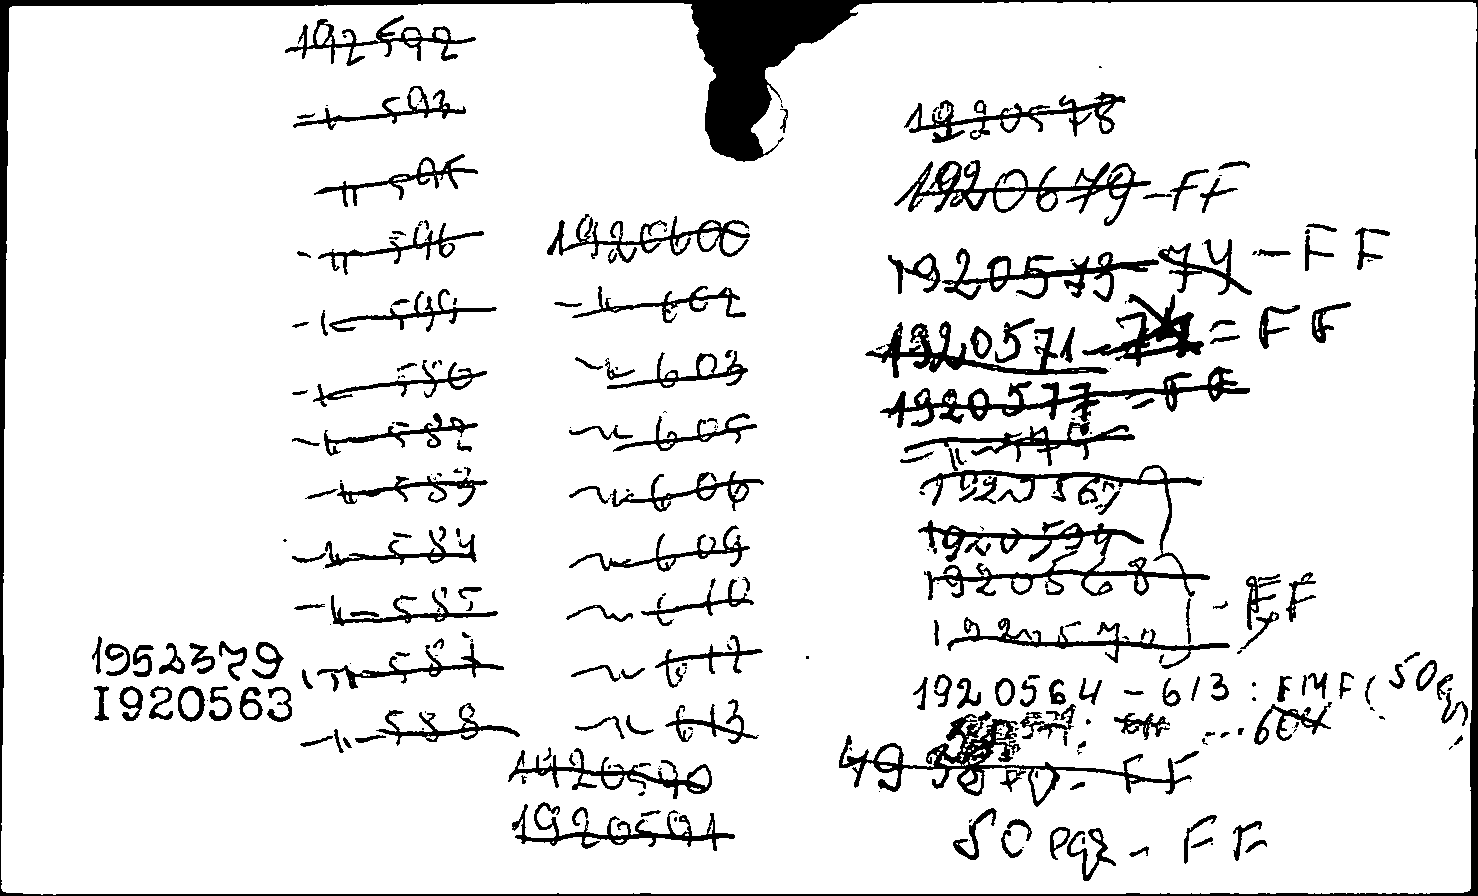 192592
=〃— 593
〃— 595
-〃— 596
-〃— 599
-〃— 580
-〃— 582
-〃— 583
-〃— 584
-〃— 585
-〃— 587
-〃— 588
1952379
I920563
1920600
-〃— 602
〃— 603
〃— 605
〃— 606
〃— 609
〃— 610
〃— 612
〃— 613
1920590
1920591
1920578
1920679-FF
1920573-74-FF
1920571-=FF
1920577-FF
1920569
1920594
1920568
1920570 - FF
1920564-613: FMF (50
...604
- FF
50 - FF